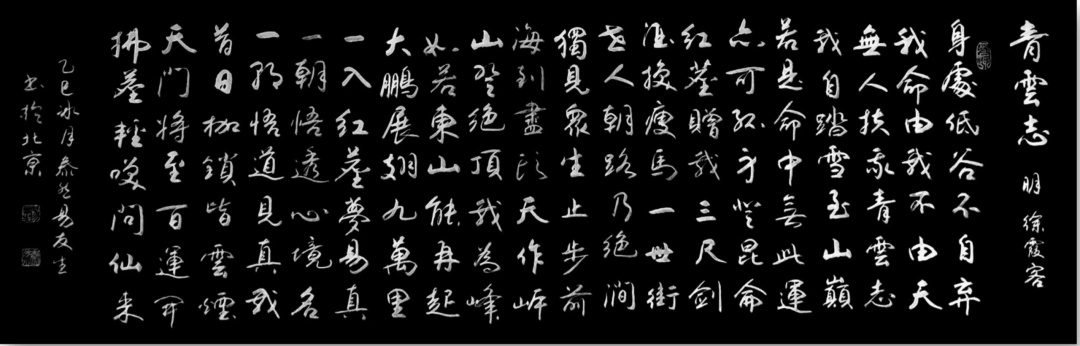 青雲志 明 徐霞客
身處低谷不自弃
我命由我不由天
無人扶我青雲志
我自踏雪至山巔
若是命中無此運
亦可孤身登昆侖
红塵贈我三尺剑
酒換瘦馬一世街
世人朝路乃絕澗
獨見眾生止步前
海到盡頭天作岸
山登絕頂我為峰
如若東山能再起
大鵬展翅九萬里
一入紅塵夢易真
一朝悟透心境名
一朝悟道見真我
昔日枷鎖皆雲煙
天門將至百運開
拂塵輕嘆問仙来
乙巳冰月泰然易友生
书於北京